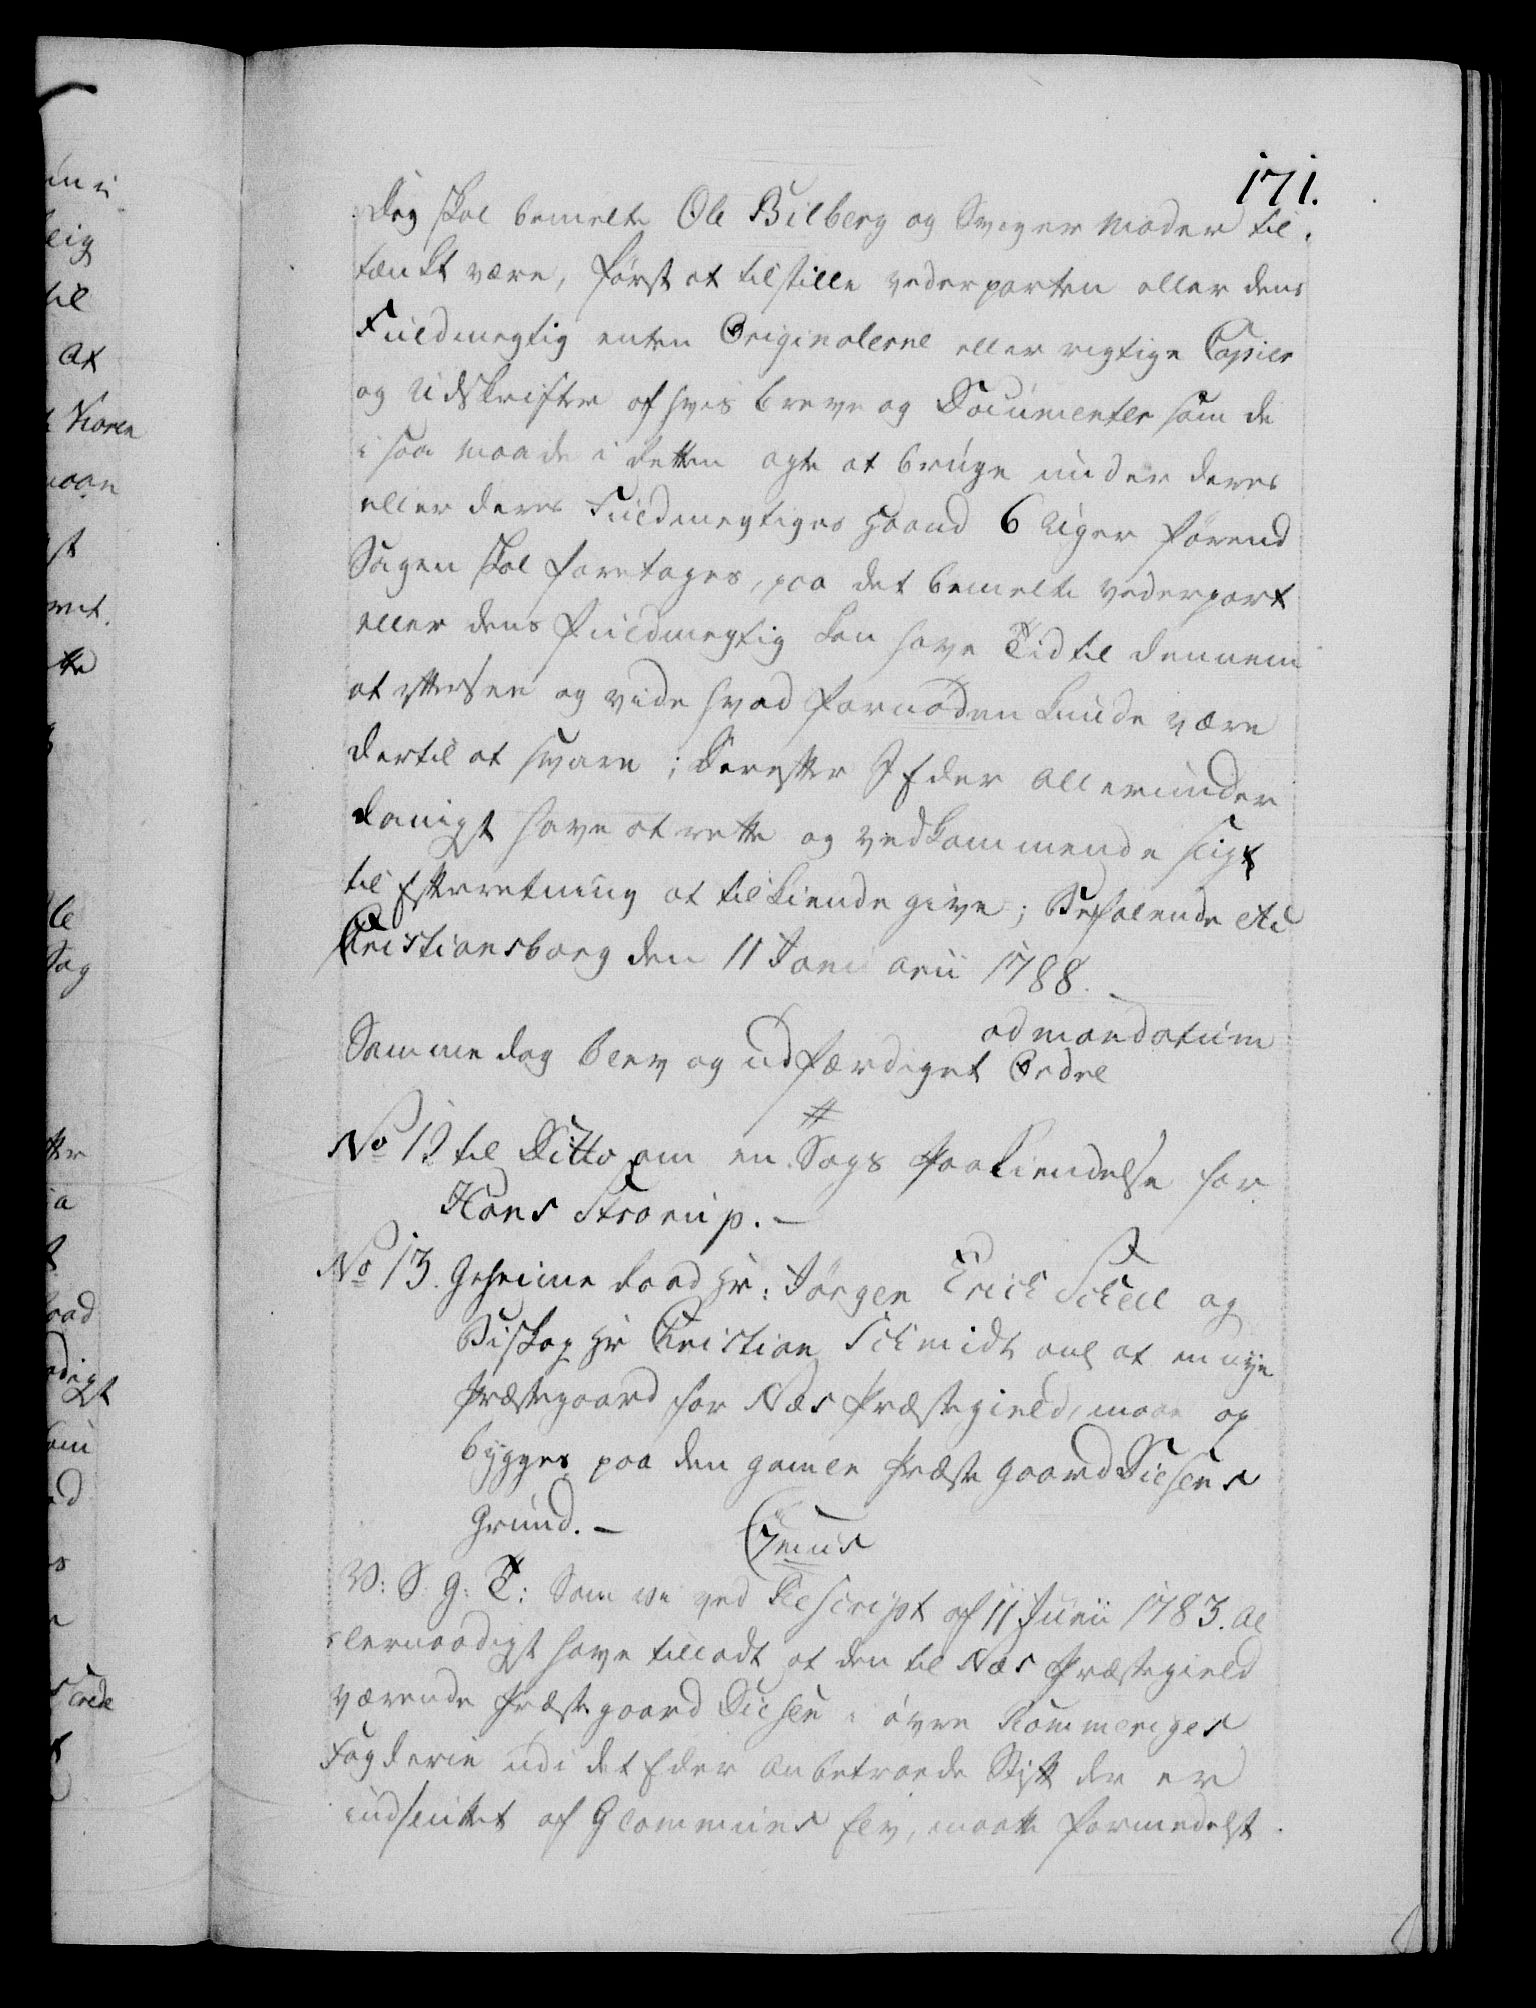 171.
Dog skal bemelte Ole Bilberg og Sviger Moder til
tænkt være, først at tilstille vederparten eller dens
Fuldmegtig enten Originalerne eller rigtige Copier
og Udskrifter af hvis breve og Documenter som de
i saa maade i Retten agte at bruge under deres
eller deres Fuldmegtiges Haand 6 Uger förend
Sagen skal foretages, paa det bemelte vederpart
eller dens fuldmegtig kan have Tid til dennem
at ettersee og vide hvad fornöden kunde være
dertil at svare; Derefter I Eder allerunder
danigst have at rette og vedkommende sligt
til Efterretning at tilkiende give; Befalende etc
Christiansborg den 11 Januarii 1788.
ad mandatum
Samme dag blev og udfærdiget Ordre
#
No 12 til Ditto om en Sags Paakiendelse for
Hans Strorup. –
No 13. Geheime Raad Hr: Jörgen Erich Scheel og
Biskop Hr Christian Schmidt anl at en nye
Præstegaard for Næs Præstegield, maae op
bygges paa den gamle Præstegaard Disens
Grund. –
C 7mus
V: S. G: T: Som vi ved Rescript af 11 Junii 1783. al
lernaadigst have tilladt at den til Næs Præstegield
værende Præstegaard Disen i övre Rommeriges
Fogderie udi det Eder anbetroede Stift der er
indsluttet af Glommens Elv, maatte formedelst